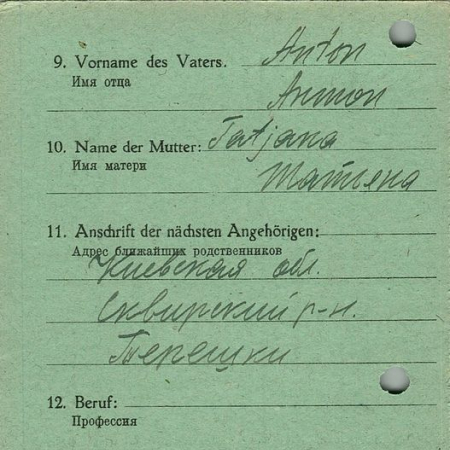 9. Vorname des Vaters. Anton
Имя отца
Антон
10. Name der Mutter: Tatjana
Имя матери
Татьяна
11. Anschrift der nächsten Angehörigen:
Адрес ближайших родственников
Киевская обл.
Сквирский р-н.
Терешки
12. Beruf:
Профессия